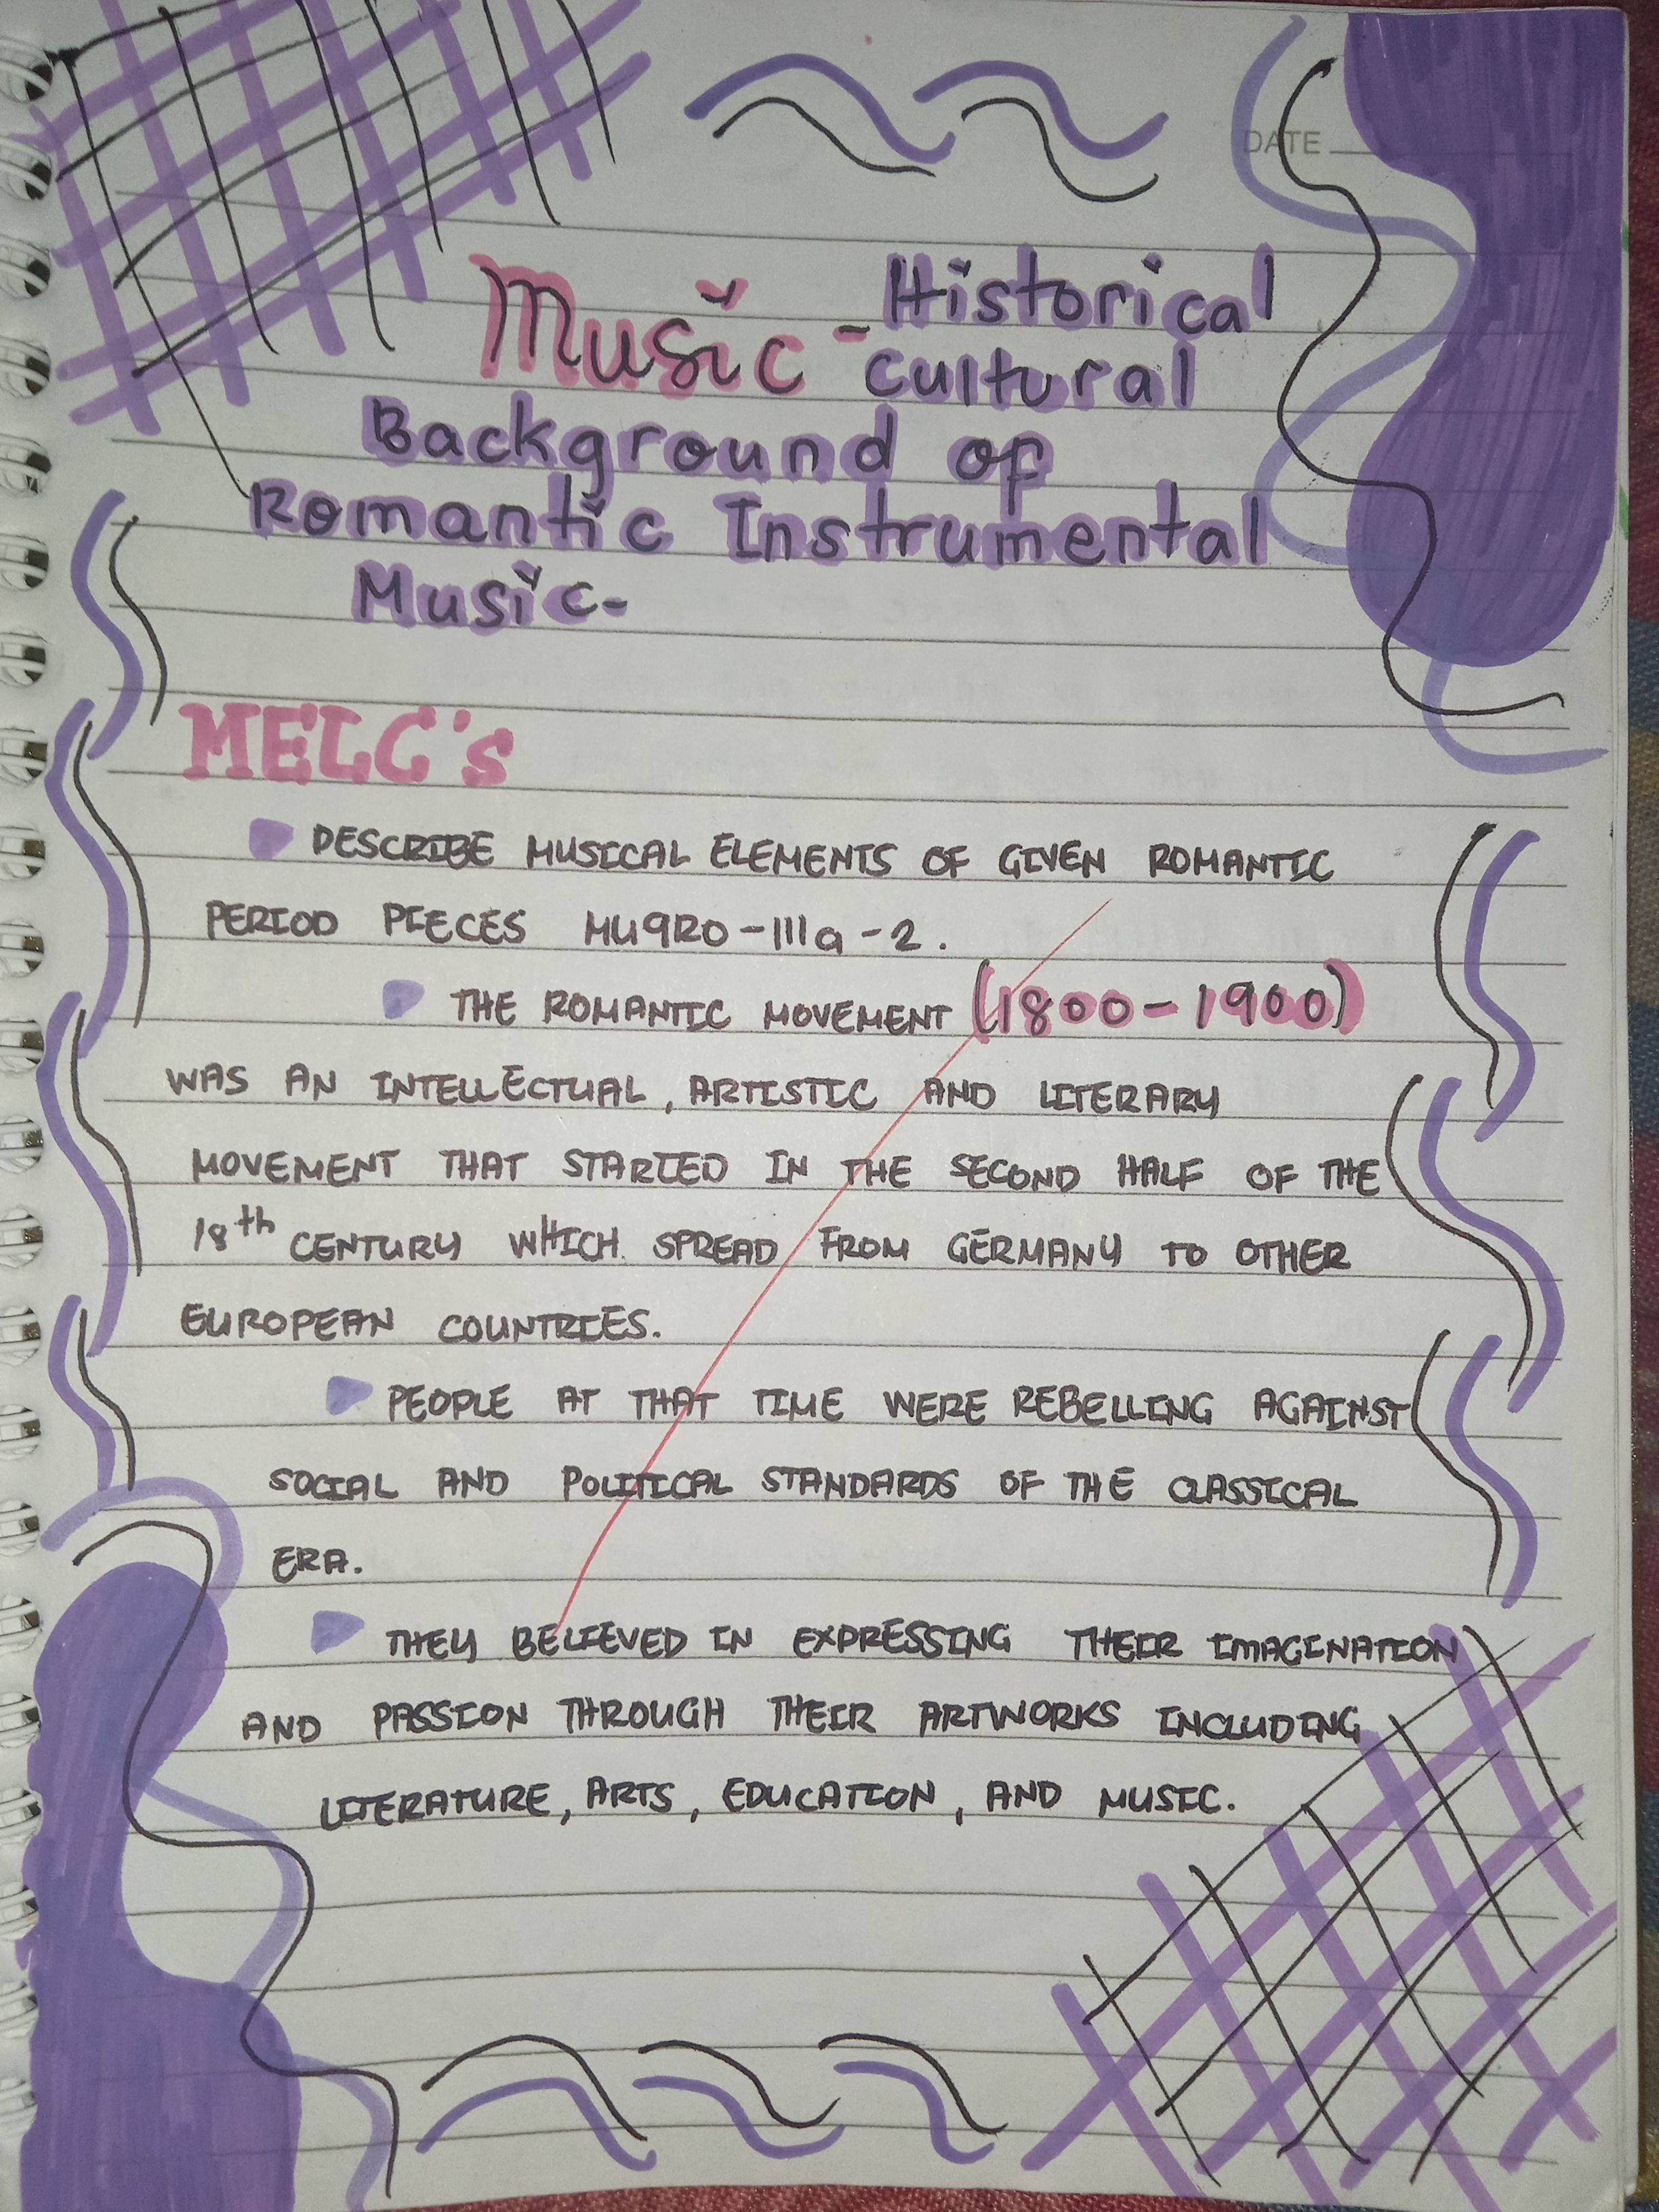 DATE
Music - Historical
cultural
Background of
Romantic Instrumental
Music-
MELC's
DESCRIBE MUSICAL ELEMENTS OF GIVEN ROMANTIC
PERIOD PIECES MU9RO-IIIa-2.
THE ROMANTIC MOVEMENT (1800-1900)
WAS AN INTELLECTUAL, ARTISTIC AND LITERARY
MOVEMENT THAT STARTED IN THE SECOND HALF OF THE
18th CENTURY WHICH SPREAD FROM GERMANY TO OTHER
EUROPEAN COUNTRIES.
PEOPLE AT THAT TIME WERE REBELLING AGAINST
SOCIAL AND POLITICAL STANDARDS OF THE CLASSICAL
ERA.
THEY BELIEVED IN EXPRESSING THEIR IMAGINATION
AND PASSION THROUGH THEIR ARTWORKS INCLUDING
LITERATURE, ARTS, EDUCATION, AND MUSIC.